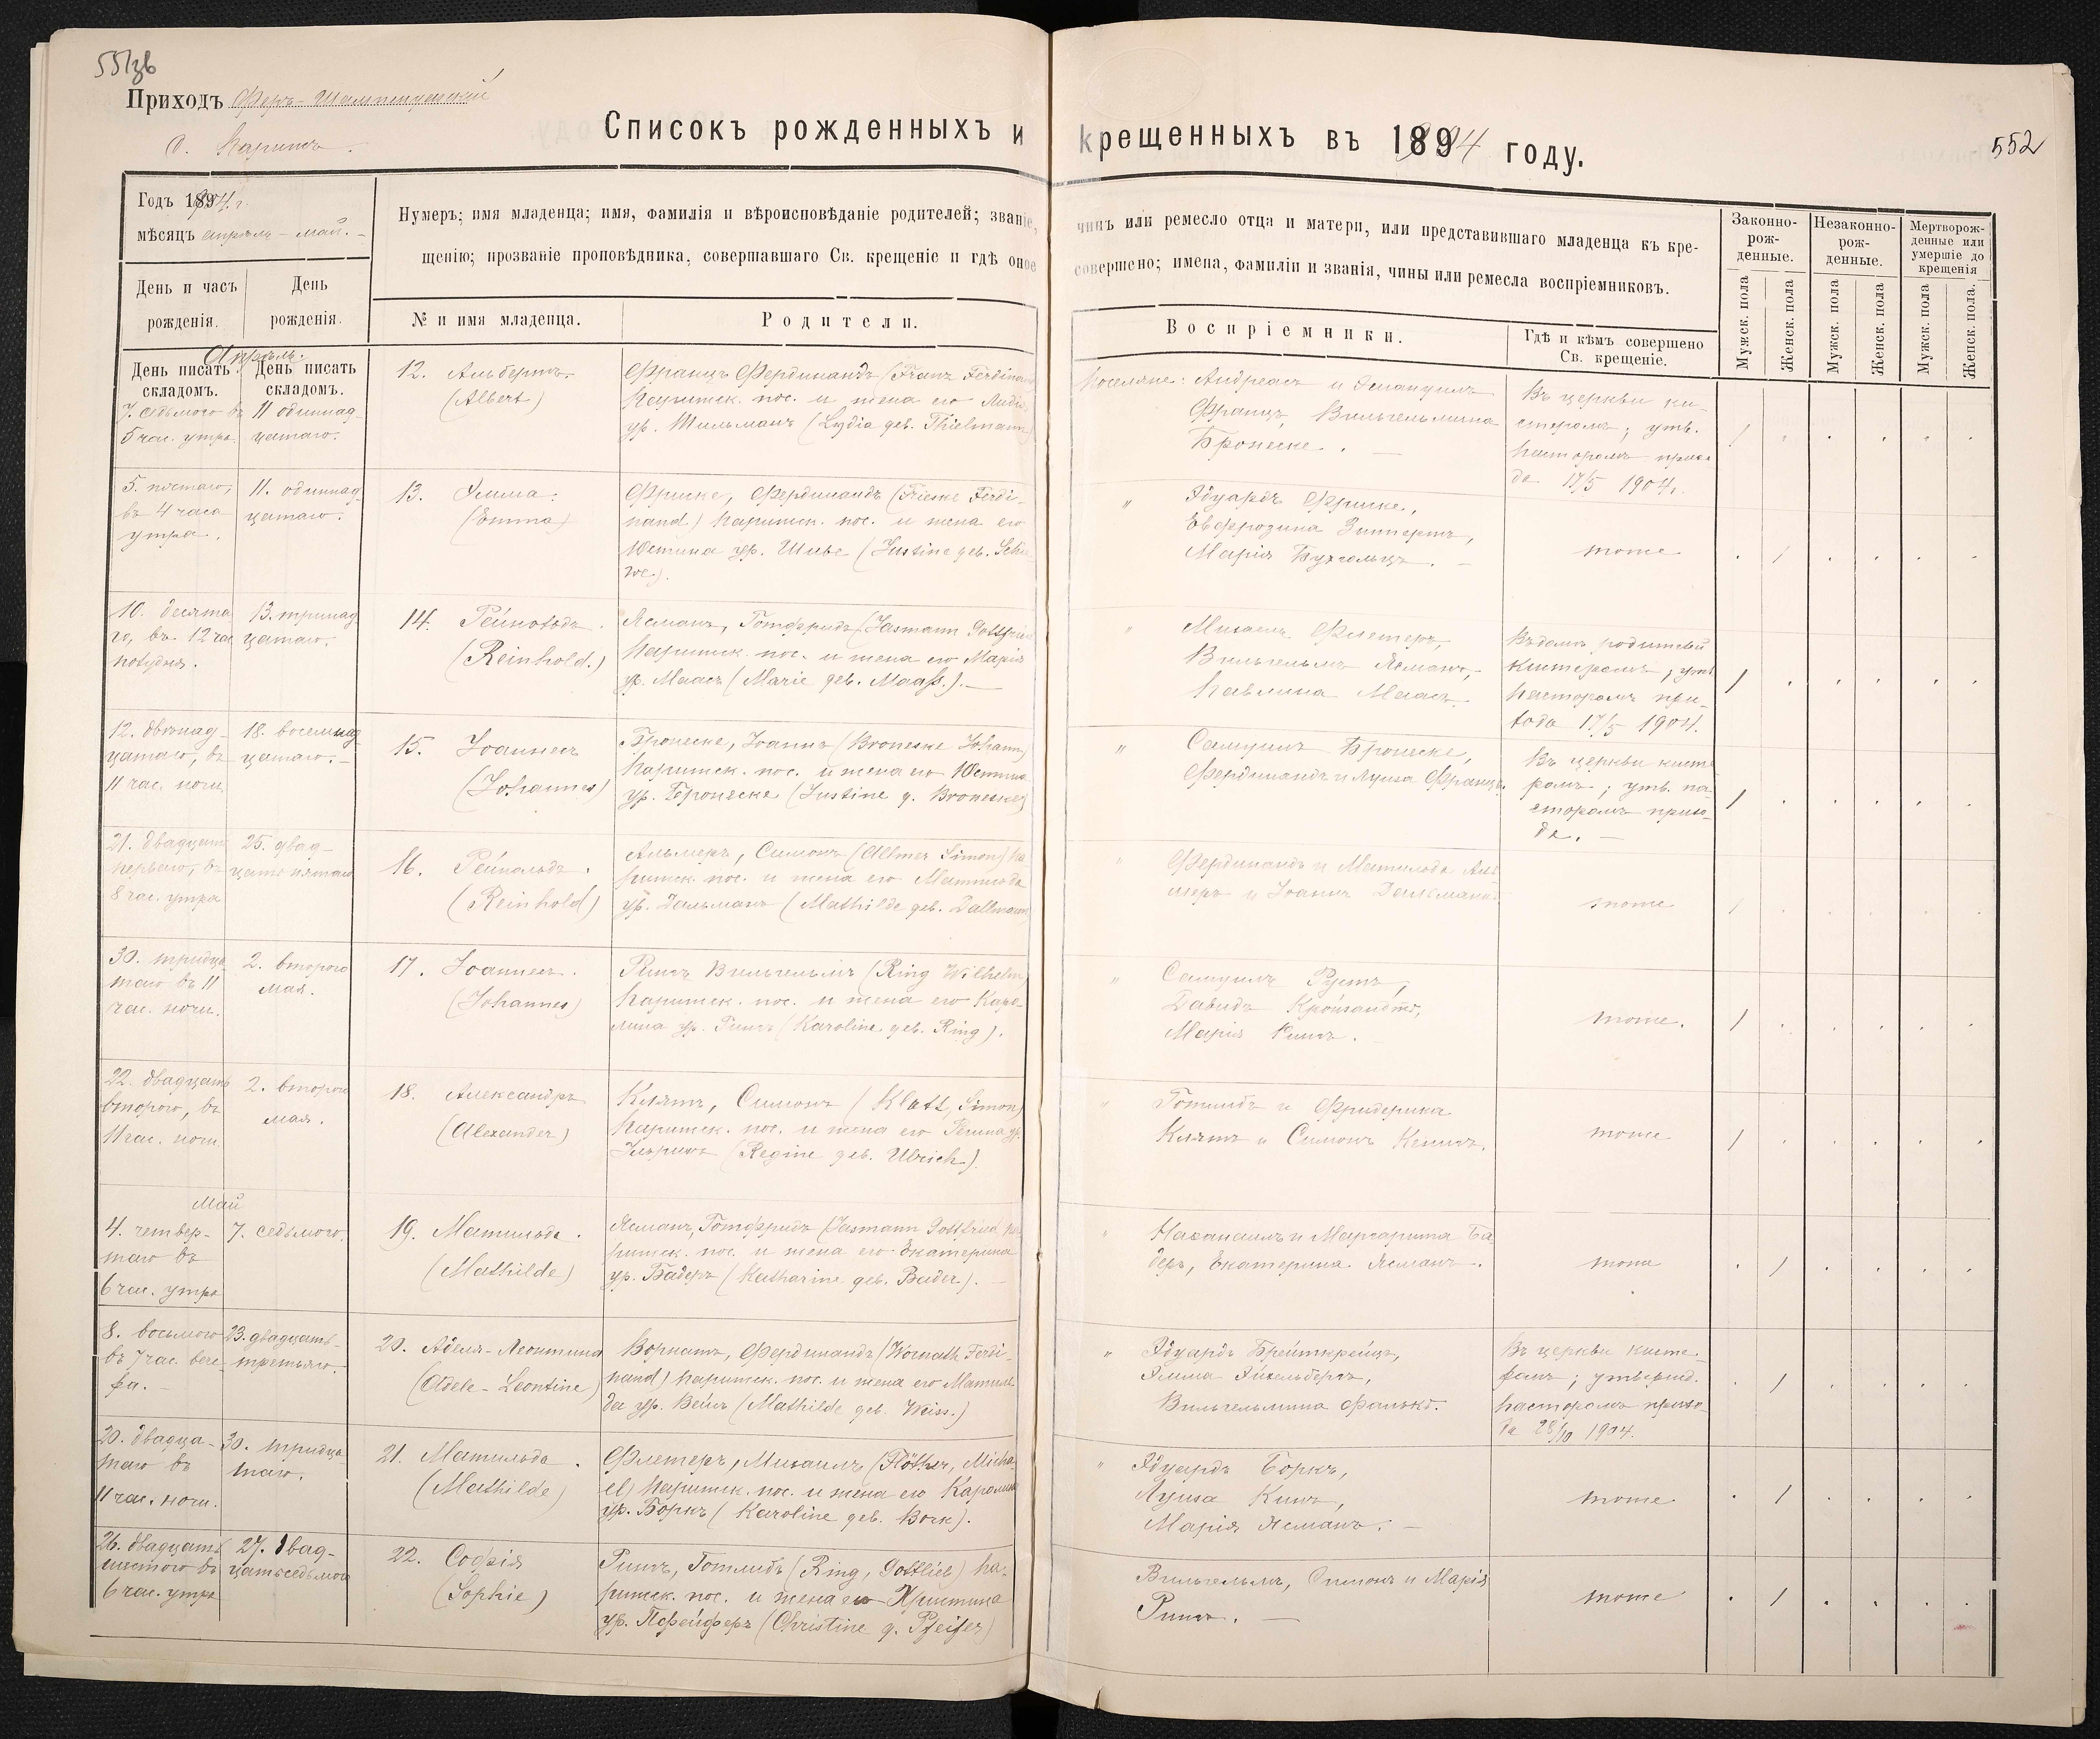 551зв
Приходъ Феръ-Шампенуазскій
о. Парижъ.
Списокъ рожденныхъ и крещенныхъ въ 1904 году.
552
Годъ 1904 г.
мѣсяцъ апрѣль - май.
День и часъ рожденія.
День рожденія.
Нумеръ; имя младенца; имя, фамилія и вѣроисповѣданіе родителей; званіе, чинъ или ремесло отца и матери, или представившаго младенца къ кре-
щенію; прозваніе проповѣдника, совершавшаго Св. крещеніе и гдѣ оное совершено; имена, фамиліи и званія, чины или ремесла воспріемниковъ.
№ и имя младенца.
Родители.
Воспріемники.
Гдѣ и кѣмъ совершено
Св. крещеніе.
Законно-
рож-
денные.
Незаконно-
рож-
денные.
Мертворож-
денные или
умершіе до
крещенія
Мужск. пола
Женск. пола
Мужск. пола
Женск. пола
Мужск. пола
Женск. пола.
Апрѣль.
День писать
складомъ.
День писать
складомъ.
7. седьмого въ
5 час. утра
11 одиннад-
цатаго.
12. Альбертъ.
(Albert)
Францъ Фердинандъ (Franz Ferdinand
Парижск. пос. и жена его Лидія
ур. Тильманъ (Lydia geb. Thielmann)
Поселяне: Андреасъ и Эмануилъ
Францъ, Вильгельмина
Бронеске.
Въ церкви ки-
стеромъ; утв.
пасторомъ прихо-
да 17/5 1904.
5. пятаго,
въ 4 часа
утра.
11. одиннад
цатаго.
13. Эмма.
(Emma)
Фриске, Фердинандъ (Frieske Ferdi-
nand) парижск. пос. и жена его
Юстина ур. Шиве (Justine geb. Schi-
we).
" Эдуардъ Фриске,
Евфрозина Зиттертъ,
Марія Бухгольцъ.
тоже
10. десята
го, въ 12 час
полудня.
13. тринад
цатаго.
14. Рейнольдъ.
(Reinhold.)
Ясманъ, Готфридъ (Jasmann Gottfried
Парижск. пос. и жена его Марія
ур. Маасъ (Marie geb. Maaß.).
" Михаелъ Флетеръ,
Вильгельмъ Ясманъ,
Павлина Маасъ.
Въ домѣ родителей
Кистеромъ; утв
пасторомъ при-
хода 17/5 1904.
12. двѣнад-
цатаго, въ
11 час. ночи
18. восемнад
цатаго.
15. Іоаннесъ
(Johannes)
Бронеске, Іоаннъ (Broneske Johann)
Парижск. пос. и жена его Юстина
ур. Бронеске (Justine g. Broneske)
" Самуилъ Бронеске,
Фердинандъ и Луиза Францъ.
Въ церкви кисте
ромъ; утв. па
сторомъ прихо-
да.
21. двадцать
перваго, въ
8 час. утра
25. двад-
цать пятаго
16. Рейнальдъ.
(Reinhold)
Альмеръ, Симонъ (Allmer Simon) па
рижск. пос. и жена его Матильда
ур. Дальманъ (Mathilde geb. Dallmann
" Фердинандъ и Матильда Аль
меръ и Іоаннъ Дальманъ
тоже
30. тридца
таго въ 11
час. ночи.
2. второго
мая.
17. Іоаннесъ.
(Johannes)
Рингъ Вильгельмъ (Ring Wilhelm)
Парижск. пос. и жена его Каро-
лина ур. Рингъ (Karoline geb. Ring).
" Самуилъ Рустъ,
Давидъ
Марія Рингъ.
тоже.
22. двадцать
второго, въ
11 час. ночи
2. второго
мая.
18. Александръ
(Alexander)
Клятъ, Симонъ (Klatt, Simon)
Парижск. пос. и жена его Регина ур.
Ульрихъ (Regine geb. Ulrich).
" Готлибъ и Фридерика
Клятъ и Симонъ
тоже
Май
4. четвер-
таго въ
6 час. утра
7. седьмого.
19. Матильда.
(Mathilde)
Ясманъ, Готфридъ (Jasmann Gottfried па
рижск. пос. и жена его Екатерина
ур. Бадеръ (Katharine geb. Bader).
" Наѳанаилъ и Маргарита Ба
деръ, Екатерина Ясманъ.
тоже
8. восьмого
въ 7 час. вече-
ра.
23. двадцать-
третьяго.
20. Аделя-Леонтина
(Adele-Leontine)
Ворнатъ, Фердинандъ (Wornath Ferdi-
nand) парижск. пос. и жена его Матиль-
да ур. Вейсъ (Mathilde geb. Weiss.)
" Эдуардъ Брейткрейцъ,
Эмма Эйхельбергъ,
Вильгельмина Фалькъ.
Въ церкви кисте-
ромъ; утвержд.
пасторомъ прихо-
да 28/10 1904.
20. двадца-
таго въ
11 час. ночи.
30. тридца
таго.
21. Матильда.
(Mathilde)
Флетеръ, Михаилъ (Flöther, Micha-
el) парижск. пос. и жена его Каролина
ур. Боркъ (Karoline geb. Bork).
" Эдуардъ Боркъ,
Луиза
Марія Ясманъ.
тоже
26. двадцать
шестого въ
6 час. утра
27. двад-
цатьседьмого
22. Софія
(Sophie)
Рингъ, Готлибъ (Ring, Gottlieb) па-
рижск. пос. и жена его Христина
ур. Пфейферъ (Christine g. Pfeifer)
Вильгельмъ, Симонъ и Марія
Рингъ.
тоже